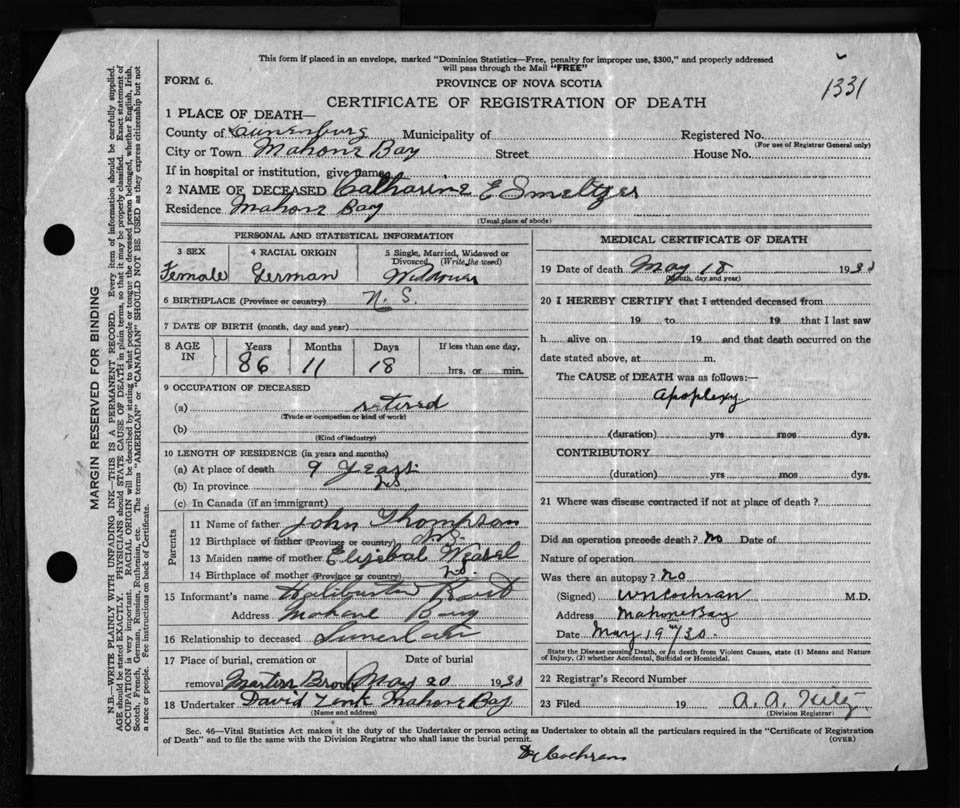 This form if placed in an envelope, marked "Dominion Statistics—Free, penalty for improper use, $300," and properly addressed
will pass through the Mail "FREE"
FORM 6.
PROVINCE OF NOVA SCOTIA
1331
CERTIFICATE OF REGISTRATION OF DEATH
1 PLACE OF DEATH—
County of Lunenburg Municipality of Registered No.
(For use of Registrar General only)
City or Town Mahone Bay Street House No.
If in hospital or institution, give names
2 NAME OF DECEASED Catharine E Smeltzer
Residence Mahone Bay
(Usual place of abode)
PERSONAL AND STATISTICAL INFORMATION
3 SEX 4 RACIAL ORIGIN 5 Single, Married, Widowed or
Divorced (Write the word)
Female German Widower
6 BIRTHPLACE (Province or country) N. S.
7 DATE OF BIRTH (month, day and year)
8 AGE IN Years Months Days If less than one day,
86 11 18 hrs. or min.
9 OCCUPATION OF DECEASED
(a) retired
(Trade or occupation or kind of work)
(b)
(Kind of industry)
10 LENGTH OF RESIDENCE (in years and months)
(a) At place of death 9 years
(b) In province NS
(c) In Canada (if an immigrant)
Parents
11 Name of father John Thompson
12 Birthplace of father (Province or country) N.S.
13 Maiden name of mother
14 Birthplace of mother (Province or country) NS.
15 Informant's name Haliburton
Address Mahone Bay
16 Relationship to deceased
17 Place of burial, cremation or Date of burial
removal Martins Brook May 20 1930
18 Undertaker David Zink Mahone Bay
(Name and address)
MEDICAL CERTIFICATE OF DEATH
19 Date of death May 18 1930
(Month, day and year)
20 I HEREBY CERTIFY that I attended deceased from
19 to 19 that I last saw
h alive on 19 and that death occurred on the
date stated above, at m.
The CAUSE of DEATH was as follows:—
Apoplexy
(duration) yrs mos dys.
CONTRIBUTORY
(duration) yrs mos dys.
21 Where was disease contracted if not at place of death?
Did an operation precede death? No Date of
Nature of operation
Was there an autopsy? No
(Signed) WN Cochran M.D.
Address Mahone Bay
Date May 19th/30.
State the Disease causing Death, or in death from Violent Causes, state (1) Means and Nature
of Injury, (2) whether Accidental, Suicidal or Homicidal.
22 Registrar's Record Number
23 Filed 19 A. A.
(Division Registrar)
Sec. 46—Vital Statistics Act makes it the duty of the Undertaker or person acting as Undertaker to obtain all the particulars required in the "Certificate of Registration
of Death" and to file the same with the Division Registrar who shall issue the burial permit.
(OVER)
Dr Cochran
MARGIN RESERVED FOR BINDING
N.B.—WRITE PLAINLY WITH UNFADING INK—THIS IS A PERMANENT RECORD. Every item of information should be carefully supplied.
AGE should be stated EXACTLY. PHYSICIANS should STATE CAUSE OF DEATH in plain terms, so that it may be properly classified. Exact statement of
OCCUPATION is very important. RACIAL ORIGIN will be described by stating to what people or tongue the deceased person belonged, whether English, Irish,
Scotch, French, German, Russian, Ruthenian, etc. The terms "AMERICAN" or "CANADIAN" SHOULD NOT BE USED as they express citizenship but not
a race or people. Fee instructions on back of Certificate.